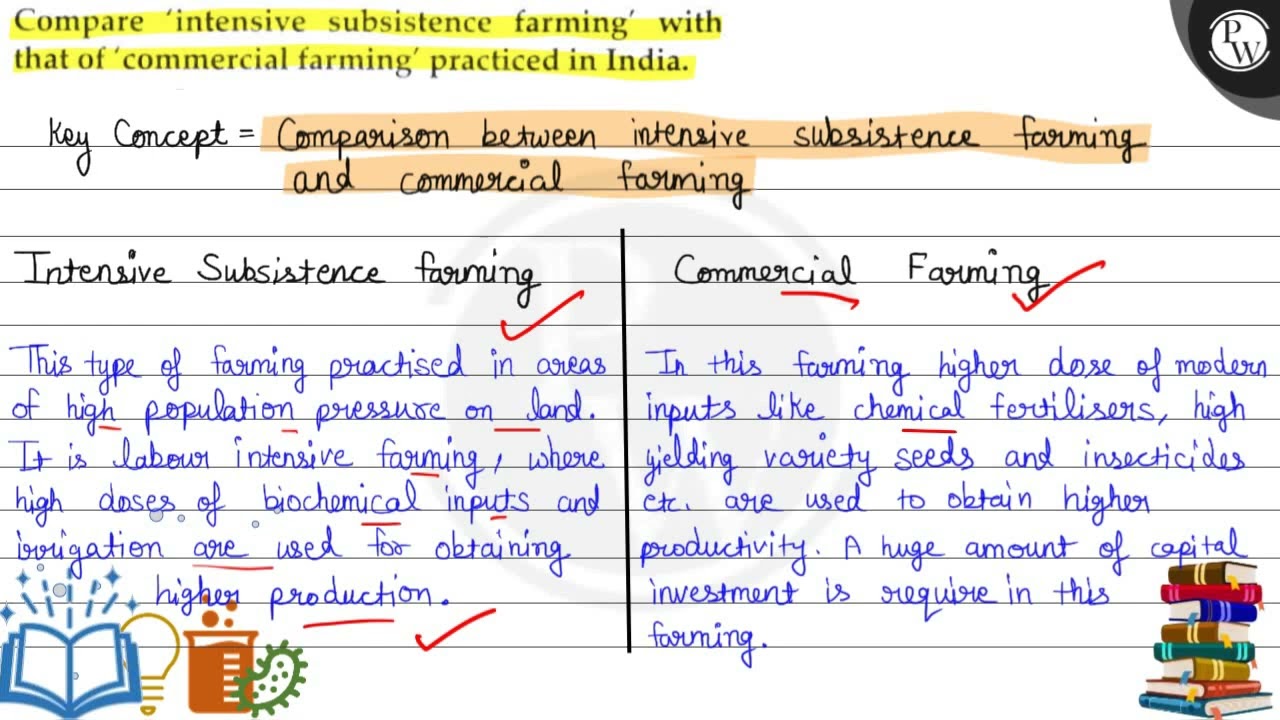 Compare ‘intensive subsistence farming’ with
that of ‘commercial farming’ practiced in India.
PW
Key Concept = Comparison between intensive subsistence farming
and commercial farming
Intensive Subsistence farming
This type of farming practised in areas
of high population pressure on land.
It is labour intensive farming, where
high doses of biochemical inputs and
irrigation are used for obtaining
higher production.
Commercial Farming
In this farming higher dose of modern
inputs like chemical fertilisers, high
yielding variety seeds and insecticides
etc. are used to obtain higher
productivity. A huge amount of capital
investment is require in this
farming.